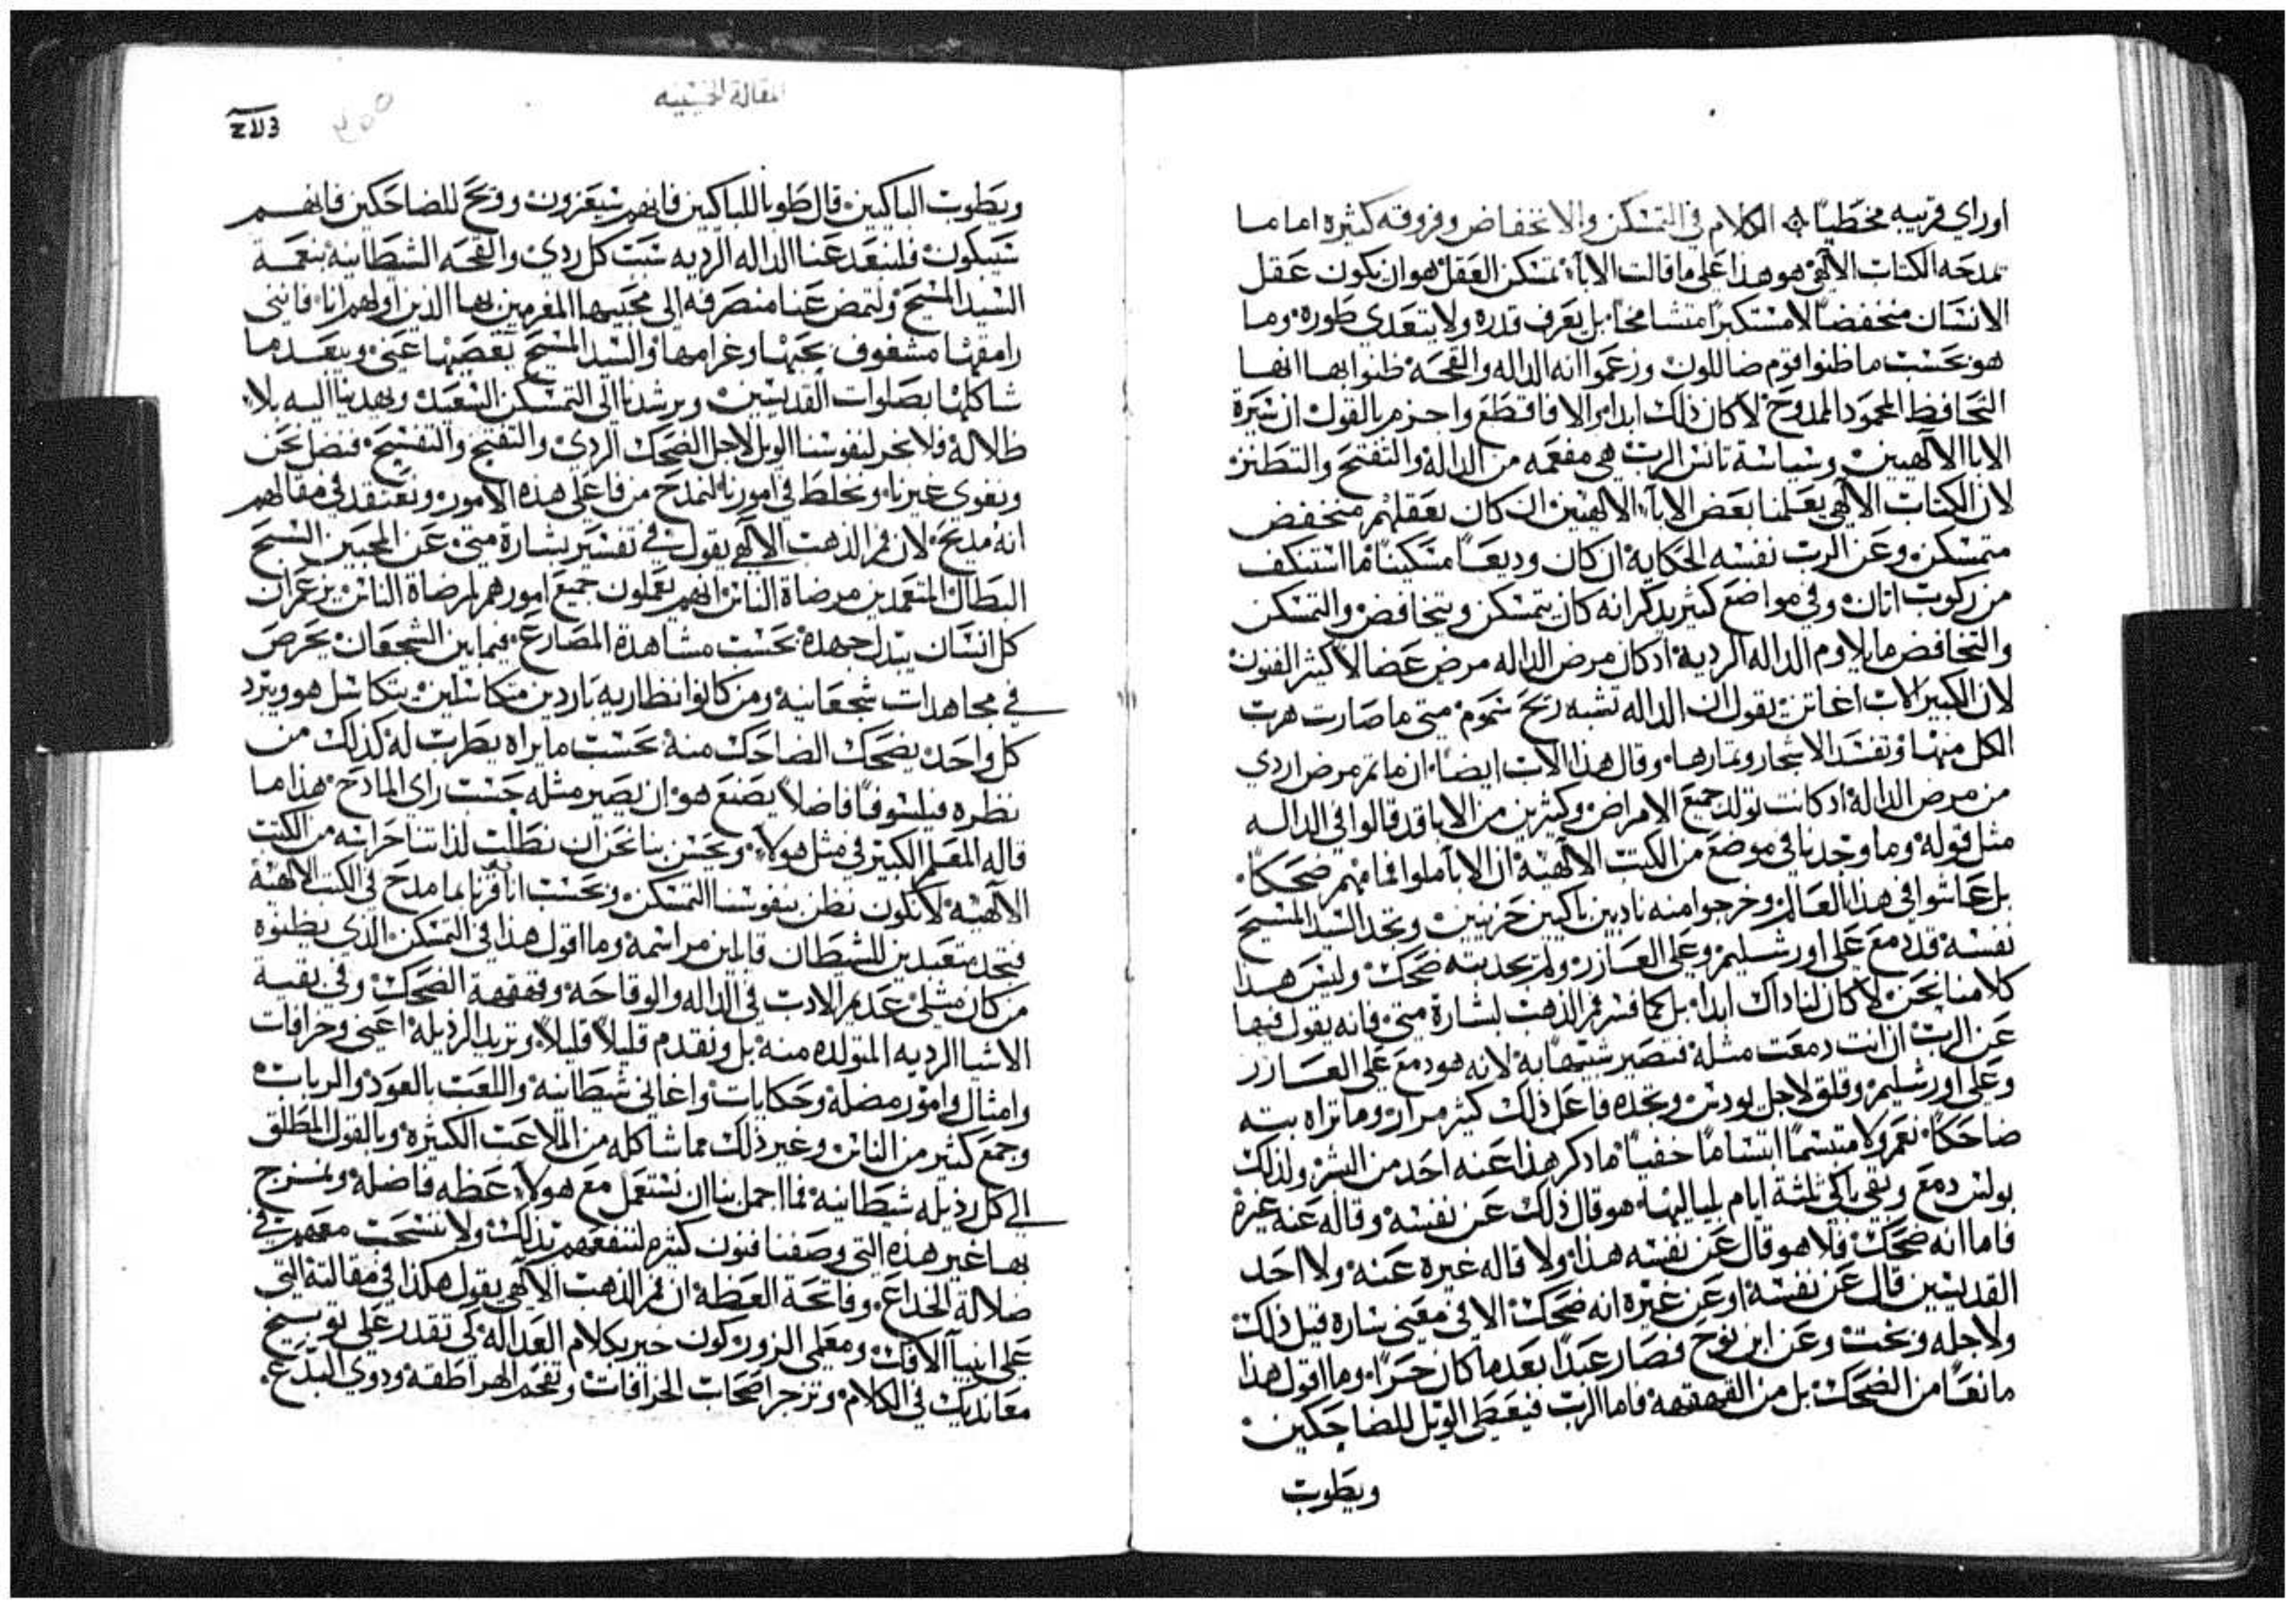 اوراي قريبه مخطيا ۞ الكلام في التمسكن والانخفاض وفروقه كثيره اما ما
تمدحه الكتاب الالهي هو هذا علي ما قالت الابآ، تمسكن العقل هو ان يكون عقل
الانسان منخفضا لا مستكبرا متشامخا، بل يعرف قدره ولا يتعدي طوره، وما
هو بحسب ما ظنوا قوم ضاللون وزعموا انه الداله والقحه ظنوا بها انها
التخافظ المحمود الممدوح لا كان ذلك ابدا، والا فاقطع واحزم بالقول ان سيرة
الابا الالهيين وسياسة تانس الرب هي مفعمه من الدالة والتفتح والتطنز
لان الكتاب الالهي يعلمنا بعض الابآء الالهيين ان كان بعقلهم منخفض
متمسكن، وعن الرب نفسه الحكاية ان كان وديعا مسكينا ما استنكف
من ركوب اتان، وفي مواضع كثير يدكر انه كان يتمسكن ويتخافض والتمسكن
والتخافض ما يلاوم الداله الرديه، ادكان مرض الداله مرض عضال لاكثر الفنون
لان الكبير الاب اغاتن يقول ان الداله تشبه ريح سموم، متي ما صارت هرب
الكل منها، وتفسد الاشجار وثمارها، وقال هذا الاب ايضا، ان ما تم مرض اردي
من مرض الدالة، ادكانت تولد جميع الامراض وكثيرين من الابا قد قالوا في الداله
مثل قوله، وما وجدنا في موضع من الكتب الالهية ان الابا ملوا فما منهم ضحكا،
بل عاشوا في هذا العالم وخرجوا منه نادبين باكيين حزينين، ونجد السيد المسيح
نفسه قد دمع علي اورشليم وعلي العازر، ولم نجد بته ضحك، وليس هدا
كلامنا نحن لا كان لنا داك ابدا، بل كما فسر فم الذهب لبشارة متي فانه يقول فيها
عن الرب ان انت دمعت مثله فتصير شبيها به، لانه هو دمع علي العازر
وعلي اورشليم، وقلق لاجل يودس ونجده فاعل ذلك كثير مرار، وما تراه بته
ضاحكا، نعم ولا متبسما ابتساما خفيا، ما دكر هذا عنه احد من البشر، ولذلك
بولس دمع وبقي باكي ثلثة ايام لمياليها، هو قال ذلك عن نفسه، وقاله عنه غيره
فاما انه ضحك، فلا هو قال عن نفسه هذا، ولا قاله غيره عنه، ولا احد
القديسين قال عن نفسه، او عن غيره انه ضحك، الا في معني ساره قيل ذلك
ولاجله وبخت، وعن ابن نوح فصار عبدا بعد ما كان حرا، وما اقول هذا
مانعا من الضحك، بل من القهقهه، فاما الرب فيعطي الويل للضاحكين
ويطوب
المقالة الخمسينيه
ويطوب الباكيين، قال طوبا للباكيين فانهم سيعزون، وويح للضاحكين فانهم
سيبكون، فلنبعد عنا الداله الرديه سبب كل ردي، والقحه الشيطانيه بنعمة
السيد المسيح، ولتمض عنا منصرفه الي محبيها المغرمين بها الذين اولهم انا، فانني
رامقها مشغوف بحبها وغرامها، والسيد المسيح يقصيها عني، ويبعد ما
شاكلها بصلوات القديسين، ويرشدنا الي التمسكن السعيد، ويهدينا اليه بلا
ظلالة، فلا نجر لنفوسنا الويل لاجل الضحك الردي، والتفتح والتفسيح، فنضل نحن
ونغوي غيرنا، ونخلط في امورنا لنمدح من فاعلي هذه الامور، ونعتقد في مقالهم
انه مديح، لان فم الذهب الالهي يقول، في تفسير بشارة متي، عن المحبين السبح
البطال المتعمدين مرضاة الناس انهم يعملون جميع امورهم لمرضاة الناس، يزعم ان
كل انسان يبدل جهده، بحسب مشاهدة المصارع، فيما بين الشجعان يحرص
في مجاهدات شجعانيه، ومن كانوا نظاريه باردين متكاسلين، يتكاسل هو ويبرد
كل واحد، يضحك الضاحك منه، بحسب ما يراه يطرب له، كذلك من
نظره فيلسوفا فاضلا يصنع هو ان يصير مثله، حسب راي المادح، هذا ما
قاله المعلم الكبير في مثل هولاء، ويحسن بنا نحن ان نطلب لذاتنا حراسه من الكتب
الالهية، لا نكون نظن بنفوسنا التمسكن، ونحسب اننا قرنا بما مدح في الكتب الالهية
فنجد متعبدين للشيطان قابلين مراسمه، وما اقول هذا في التمسكن الذي يظنوه
من كان مثلي عديم الادب في الداله والوقاحه، وقهقهة الضحك، وفي بقية
الاشيا الرديه المتولده منه، بل ونقدم قليلا قليلا، ونزيد الرذيله، اعني وخرافات
وامثال وامور مضله، وحكايات، واغاني شيطانيه، واللعب بالعود والرباب
وجمع كثير من الناس، وغير ذلك مما شاكله من الملاعب الكثيره، وبالقول المطلق
الي كل رذيله شيطانيه، فما اجمل بنا ان نستعمل مع هولاء عظه فاضله، ونمزج
بها غير هذه التي وصفنا فنون كثيره لننفعهم بذلك، ولا ننسحب معهم في
ضلالة الخداع، وفاتحة العظه ان فم الذهب الالهي يقول هكذا في مقالته التي
علي انبيآ الافك، ومعلمي الزور، كون خبير بكلام العداله، كي تقدر علي توبيخ
معانديك في الكلام، وتزجر اصحاب الخرافات، وتفحم الهراطقه ودوي البدع،